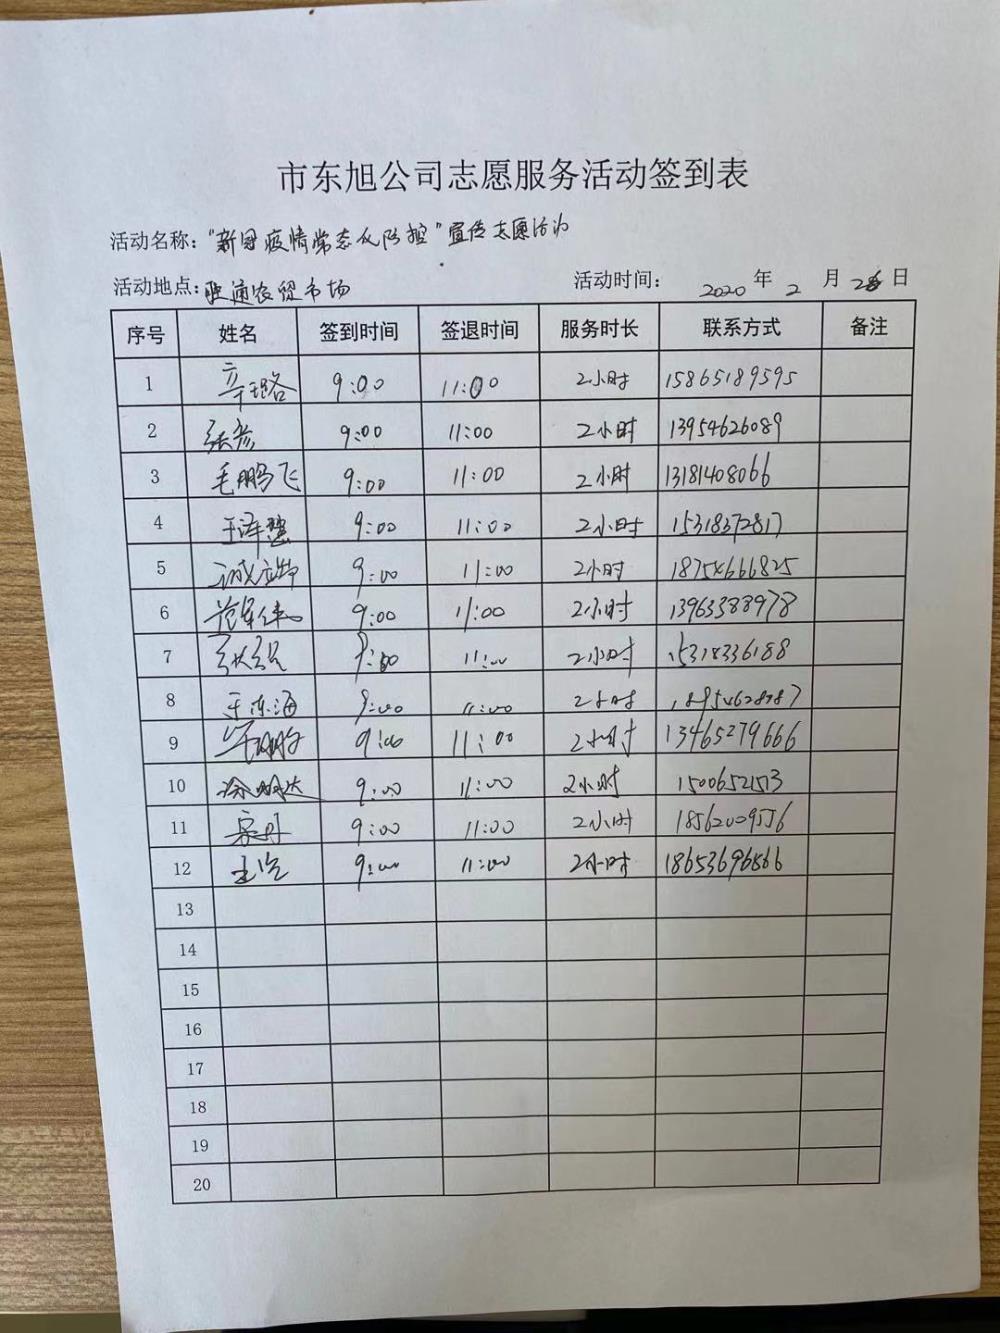 市东旭公司志愿服务活动签到表
活动名称："新冠疫情常态化防控"宣传志愿活动
活动地点：农贸市场
活动时间： 2020 年 2 月 日
序号 姓名 签到时间 签退时间 服务时长 联系方式 备注
1 辛珞 9:00 11:00 2小时 15865189595
2 张彦 9:00 11:00 2小时 13954626089
3 毛鹏飞 9:00 11:00 2小时 13181408066
4 王泽慧 9:00 11:00 2小时 15318372817
5 9:00 11:00 2小时 18754666825
6 9:00 11:00 2小时 13963388978
7 9:00 11:00 2小时 15318336188
8 王东海 9:00 11:00 2小时
9 9:00 11:00 2小时 13465279666
10 徐明达 9:00 11:00 2小时 15006521513
11 9:00 11:00 2小时 18562009556
12 9:00 11:00 2小时
13
14
15
16
17
18
19
20